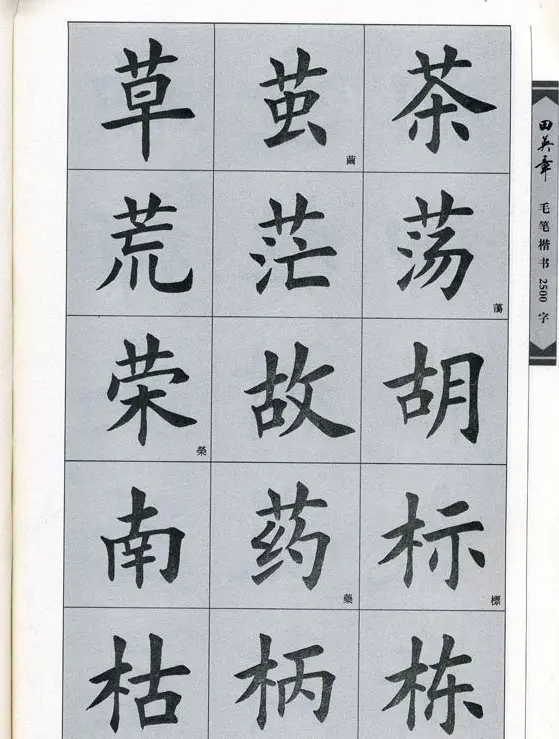 草 茧 繭 茶
荒 茫 荡 蕩
荣 榮 故 胡
南 药 藥 标 標
枯 柄 栋
田英章 毛笔楷书 2500 字